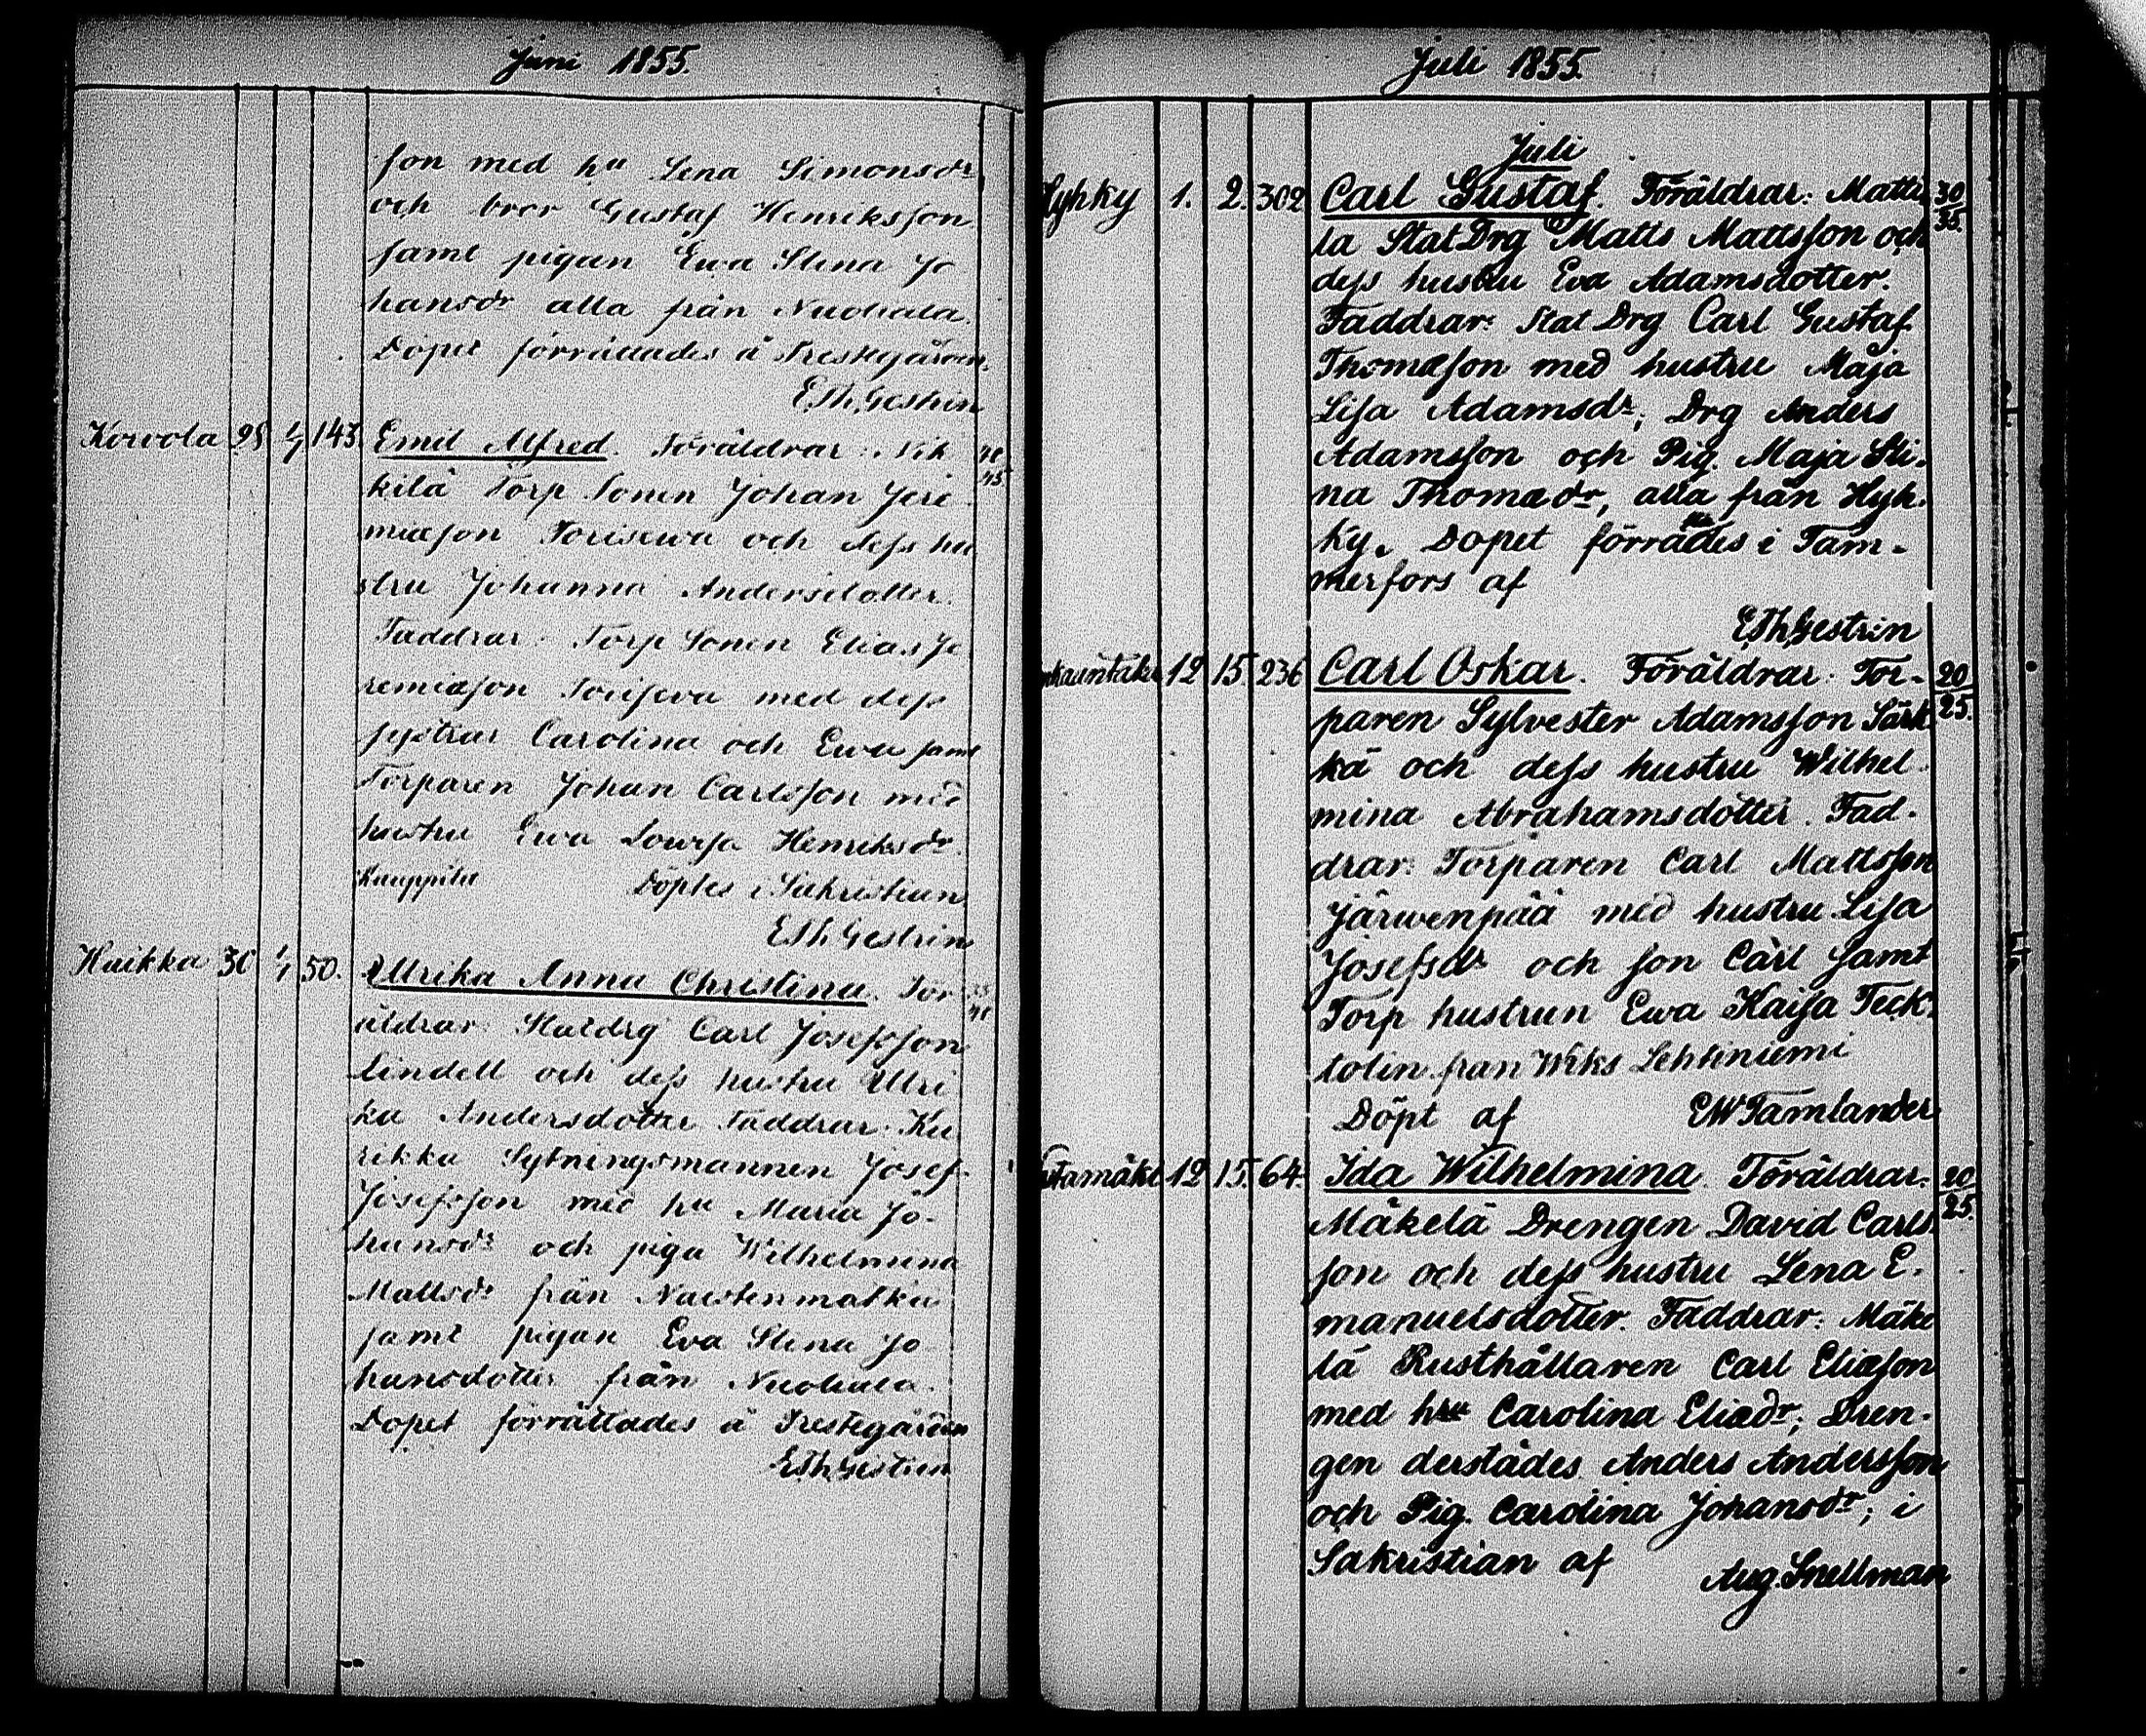 Juni 1855.
son med hu Lena Simonsdr
och bror Gustaf Henriksson
samt pigan Ewa Stina Jo
hansdr alla från Nuoliala.
Dopet förrättades å Prestegården.
E.Th.Gestrin
Korvola 25 1/7 143 Emil Alfred. Föräldrar: Nik
kilä Torp Sonen Johan Jere
miæson Torisewa och dess hu
stru Johanna Andersdotter.
Faddrar: Torp Sonen Elias Je
remiæson Torisewa med dess
systrar Carolina och Ewa samt
Torparen Johan Carlsson med
hustru Ewa Lowisa Henriksdr.
Kauppila Döptes i Sakristian
E.Th.Gestrin
Haikka 30 1/7 50. Ulrika Anna Christina. För
äldrar: Statdrg Carl Josefsson
Lindell och dess hustru Ulri
ka Andersdotter Faddrar: Ku
rikka Sytningsmannen Josef
Josefsson med hu Maria Jo-
hansdr och piga Wilhelmina
Mattsdr från Naistenmatka
samt pigan Eva Stina Jo
hansdotter från Nuoliala.
Dopet förrättades å Prestegården
E.Th.Gestrin
Juli 1855.
Juli
Hyhky 1. 2. 302 Carl Gustaf. Föräldrar: Matti 30/35.
la Stat Drg Matts Mattsson och
dess hustru Eva Adamsdotter.
Faddrar: Stat Drg Carl Gustaf
Thomæson med hustru Maja
Lisa Adamsdr; Drg Anders
Adamsson och Pig. Maja Sti-
na Thomædr, alla från Hyh-
ky. Dopet förrättades i Tam-
merfors af
E.Th.Gestrin
12 15. 236 Carl Oskar. Föräldrar: Tor- 20/25.
paren Sylvester Adamsson Särk
kä och dess hustru Wilhel-
mina Abrahamsdotter. Fad-
drar: Torparen Carl Mattsson
Järwenpää med hustru Lisa
Josefsdr och son Carl samt
Torp hustrun Ewa Kaisa Teck
tolin från Wiks Lehtiniemi
Döpt af E W Tamlander
12 15. 64. Ida Wilhelmina. Föräldrar: 20/25.
Mäkelä Drengen David Carls
son och dess hustru Lena E-
manuelsdotter. Faddrar: Mäke
lä Rusthållaren Carl Eliæson
med hru Carolina Eliædr; Dren-
gen derstädes Anders Andersson
och Pig. Carolina Johansdr; i
Sakristian af Aug. Snellman